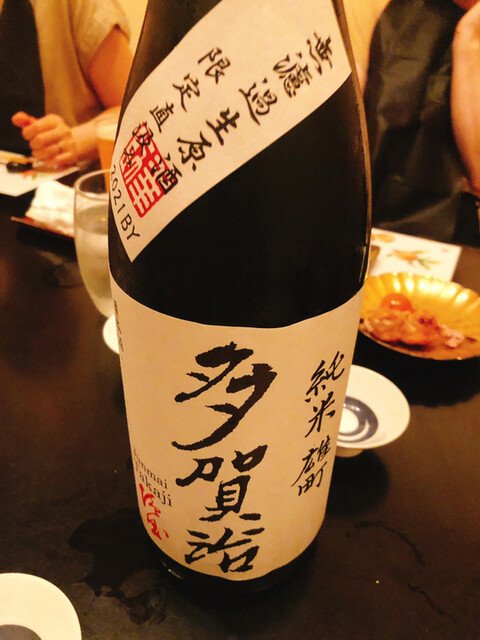 無濾過生原酒
限定直汲
2021BY
純米雄町
多賀治
Junmai
Takaji